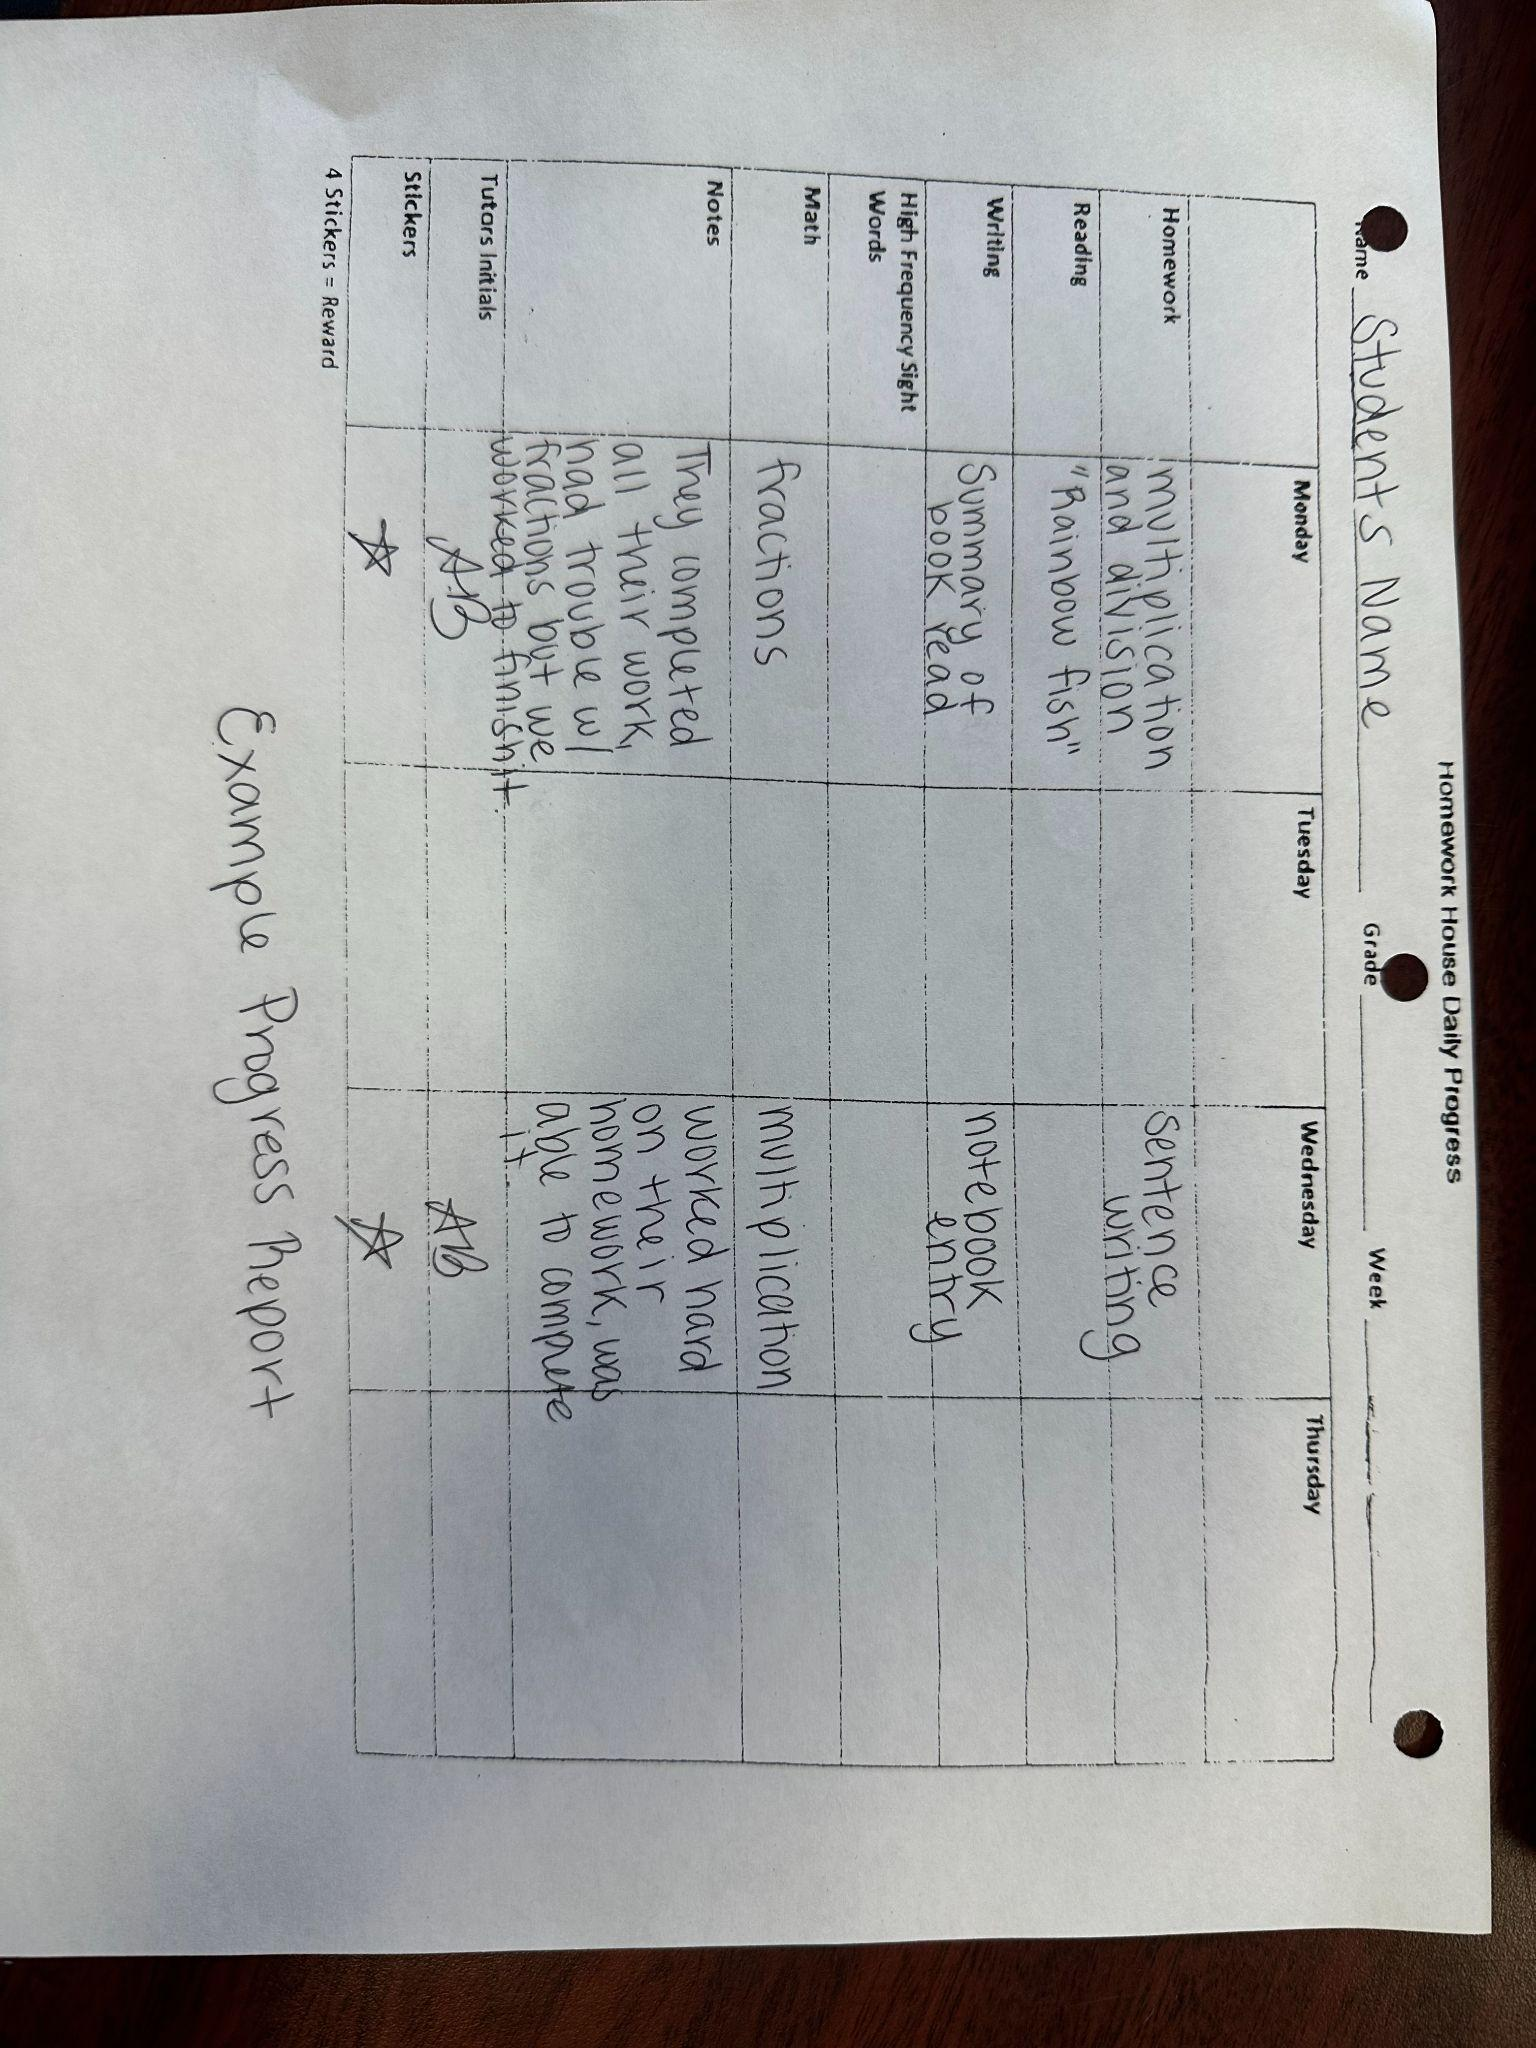 Homework House Daily Progress
Name Students Name Grade Week
Monday Tuesday Wednesday Thursday
Homework multiplication and division Sentence writing
Reading "Rainbow fish"
Writing Summary of book read notebook entry
High Frequency Sight Words
Math fractions multiplication
Notes They completed all their work, had trouble w/ fractions but we worked to finish it. worked hard on their homework, was able to complete it.
Tutors Initials AB AB
Stickers
4 Stickers = Reward
Example Progress Report